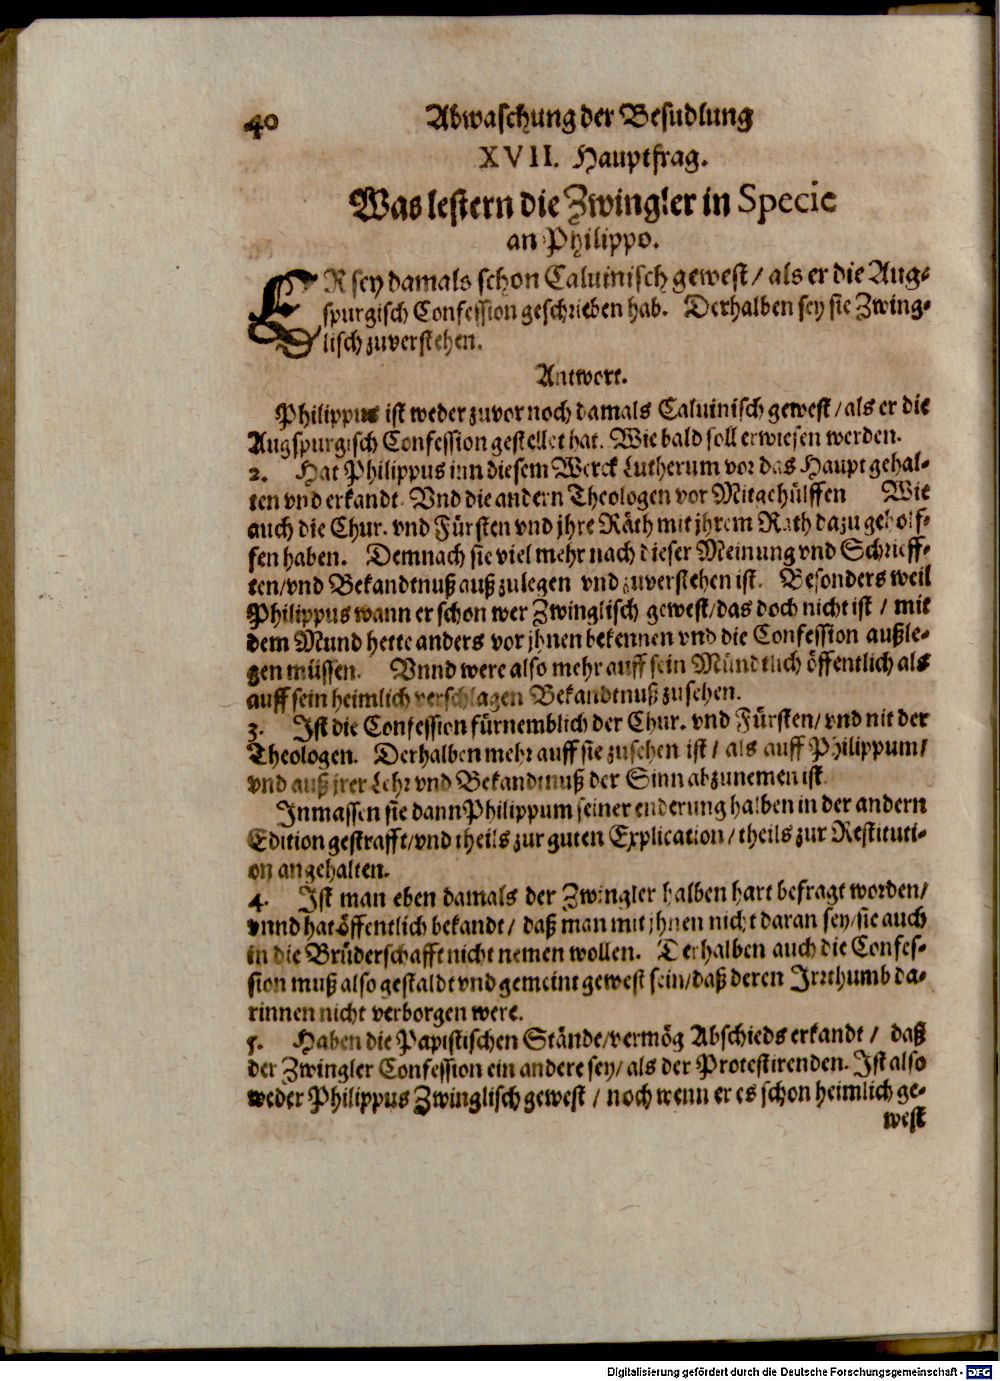 40 Abwaschung der Besudlung
XVII. Hauptfrag.
Was lestern die Zwingler in Specie
an Philippo.
ER sey damals schon Caluinisch gewest / als er die Aug-
spurgisch Confession geschrieben hab. Derhalben sey sie Zwing-
lisch zuverstehen.
Antwort.
Philippus ist weder zuvor noch damals Caluinisch gewest / als er die
Augspurgisch Confession gestellet hat. Wie bald soll erwiesen werden.
2. Hat Philippus inn diesem Werck Lutherum vor das Haupt gehal-
ten vnd erkandt. Vnd die andern Theologen vor Mitgehülffen Wie
auch die Chur. vnd Fürsten vnd jhre Räth mit jhrem Rath dazu geholf-
fen haben. Demnach sie viel mehr nach dieser Meinung vnd Schrieff-
ten/vnd Bekandtnuß auß zulegen vnd zuverstehen ist. Besonders weil
Philippus wann er schon wer Zwinglisch gewest/das doch nicht ist / mit
dem Mund hette anders vor jhnen bekennen vnd die Confession außle-
gen müssen. Vnnd were also mehr auff sein Mündtlich öffentlich als
auff sein heimlich verschlagen Bekandtnuß zusehen.
3. Ist die Confession fürnemblich der Chur. vnd Fürsten/ vnd nit der
Theologen. Derhalben mehr auff sie zusehen ist / als auff Philippum/
vnd auß jrer Lehr vnd Bekandtnuß der Sinn abzunemen ist.
Inmassen sie dann Philippum seiner enderung halben in der andern
Edition gestrafft/vnd theils zur guten Explication / theils zur Restituti-
on angehalten.
4. Ist man eben damals der Zwingler halben hart befragt worden/
vnnd hat öffentlich bekandt / daß man mit jhnen nicht daran sey/sie auch
in die Brüderschafft nicht nemen wollen. Derhalben auch die Confes-
sion muß also gestaldt vnd gemeint gewest sein/daß deren Irrthumb da-
rinnen nicht verborgen were.
5. Haben die Papistischen Stände/vermög Abschieds erkandt / daß
der Zwingler Confession ein andere sey/ als der Protestirenden. Ist also
weder Philippus Zwinglisch gewest / noch wenn er es schon heimlich ge-
west
Digitalisierung gefördert durch die Deutsche Forschungsgemeinschaft - DFG